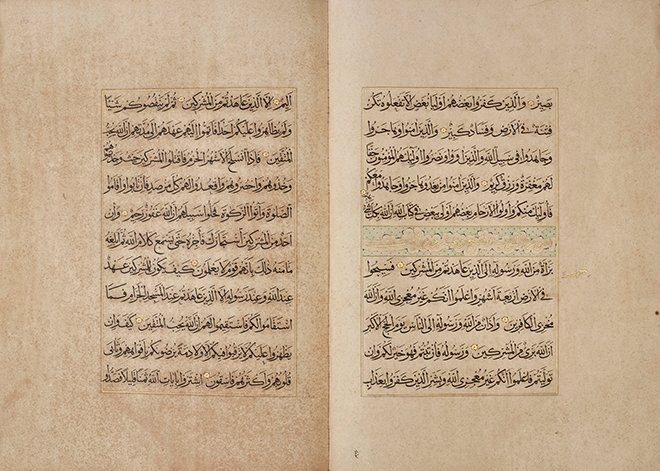 بصير والذين كفروا بعضهم اوليا بعض الا تفعلوه تكن
فتنة في الارض وفساد كبير والذين امنوا وهاجروا
وجاهدوا في سبيل الله والذين اووا ونصروا اوليك هم المؤمنون حقا
لهم مغفرة ورزق كريم والذين امنوا من بعد وهاجروا وجاهدوا معكم
فاوليك منكم واولوا الارحام بعضهم اولى ببعض في كتاب الله ان الله بكل
براة من الله ورسوله الى الذين عاهدتم من المشركين فسيحوا
في الارض اربعة اشهر واعلموا انكم غير معجزي الله وان الله
مخزي الكافرين واذان من الله ورسوله الى الناس يوم الحج الاكبر
ان الله بري من المشركين ورسوله فان تبتم فهو خير لكم وان
توليتم فاعلموا انكم غير معجزي الله وبشر الذين كفروا بعذاب
اليم الا الذين عاهدتم من المشركين ثم لم ينقصوكم شيئا
ولم يظاهروا عليكم احدا فاتموا اليهم عهدهم الى مدتهم ان الله يحب
المتقين فاذا انسلخ الاشهر الحرم فاقتلوا المشركين حيث وجدتموهم
وخذوهم واحصروهم واقعدوا لهم كل مرصد فان تابوا واقاموا
الصلوة واتوا الزكوة فخلوا سبيلهم ان الله غفور رحيم وان
احد من المشركين استجارك فاجره حتى يسمع كلام الله ثم ابلغه
مامنه ذلك بانهم قوم لا يعلمون كيف يكون للمشركين عهد
عند الله وعند رسوله الا الذين عاهدتم عند المسجد الحرام فما
استقاموا لكم فاستقيموا لهم ان الله يحب المتقين كيف وان
يظهروا عليكم لا يرقبوا فيكم الا ولا ذمة يرضونكم بافواههم وتابى
قلوبهم واكثرهم فاسقون اشتروا بايات الله ثمنا قليلا فصدوا